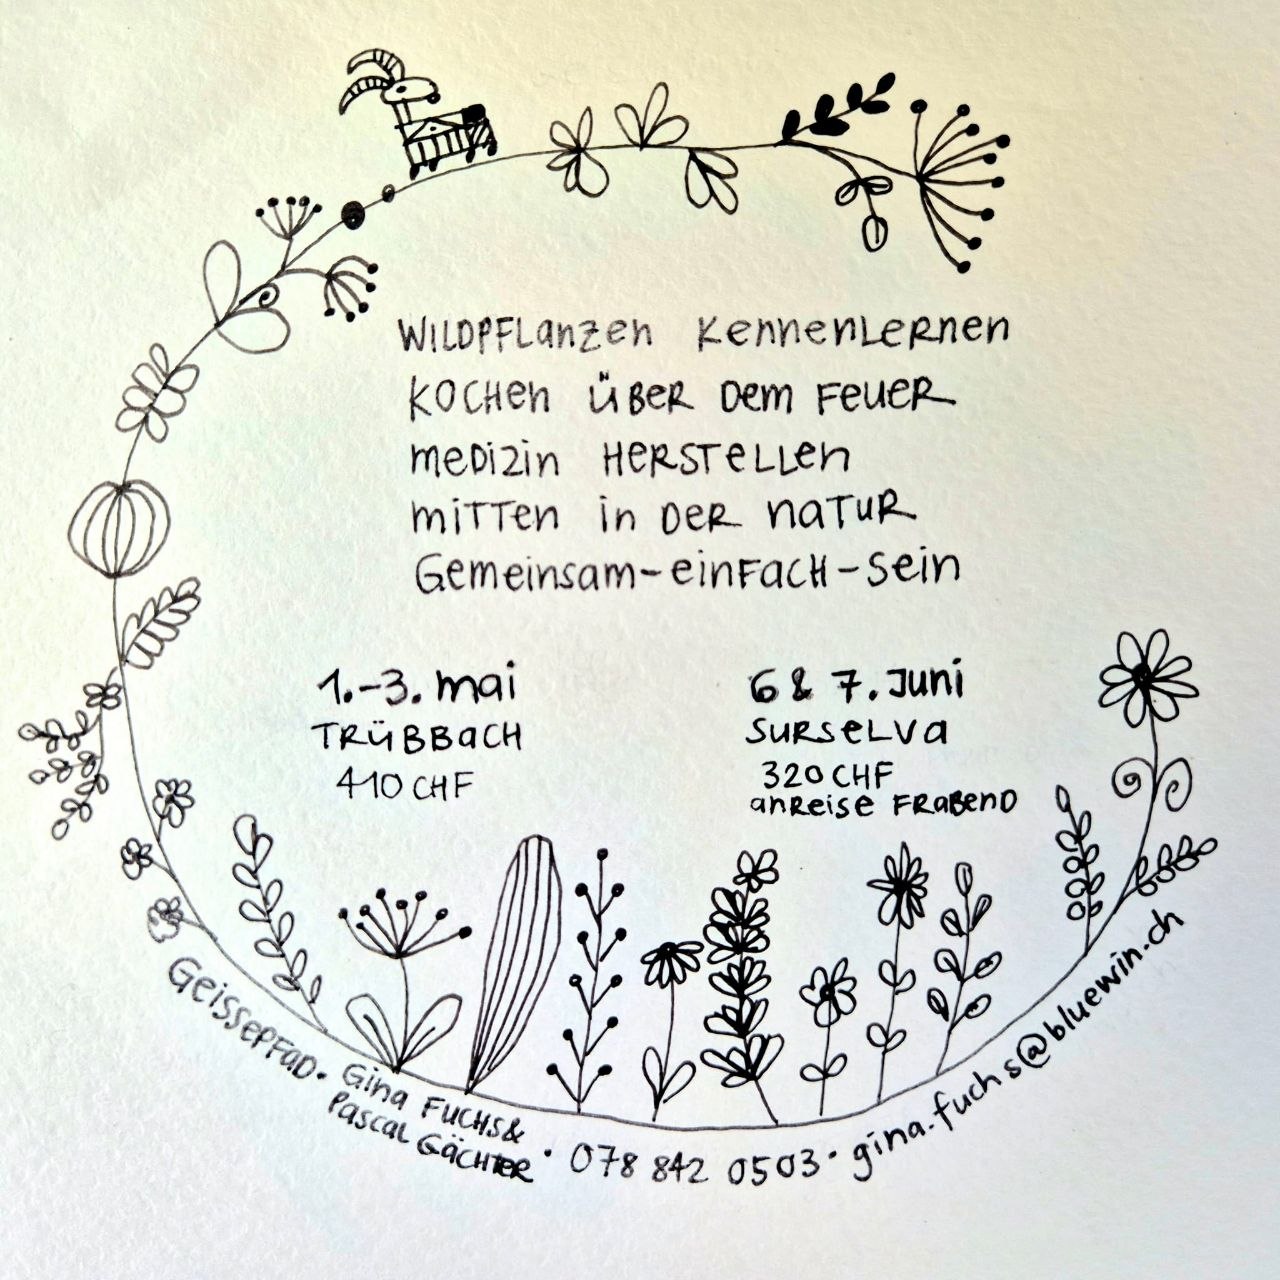 Wildpflanzen kennenlernen
kochen über dem Feuer
medizin herstellen
mitten in der natur
Gemeinsam-einfach-sein
1.-3. mai
Trübbach
410 CHF
6 & 7. Juni
Surselva
320 CHF
anreise Frabend
Geissepfad · Gina Fuchs &
Pascal Gächter · 078 842 0503 · gina.fuchs@bluewin.ch